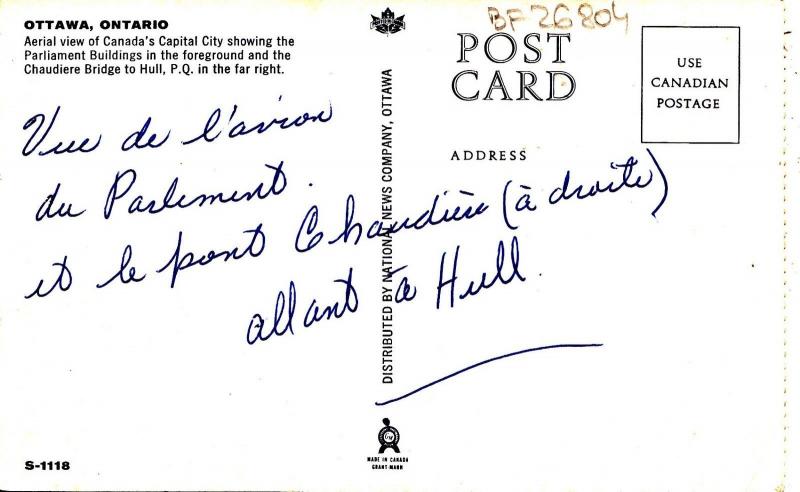 OTTAWA, ONTARIO
Aerial view of Canada's Capital City showing the
Parliament Buildings in the foreground and the
Chaudiere Bridge to Hull, P.Q. in the far right.
BF26804
POST
CARD
USE
CANADIAN
POSTAGE
ADDRESS
Vue de l'avion
du Parlement.
et le pont Chaudière (à droite)
allant à Hull.
DISTRIBUTED BY NATIONAL NEWS COMPANY, OTTAWA
S-1118
MADE IN CANADA
GRANT-MANN